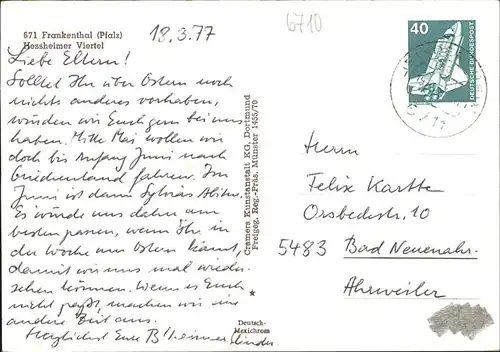 671 Frankenthal (Pfalz)
Hessheimer Viertel
18.3.77
6710
Liebe Eltern!
Solltet Ihr über Ostern noch
nichts anderes vorhaben,
würden wir Euch gern bei uns
haben. Mitte Mai wollen wir
doch bis Anfang Juni nach
Griechenland fahren. Im
Juni ist dann Sylvias Abitur.
Es würde uns daher am
besten passen, wenn Ihr in
der Woche um Ostern kämt,
damit wir uns mal wieder-
sehen können. Wenn es Euch
nicht paßt, machen wir eine
andere Zeit aus.
Herzlichst Eure
Cramers Kunstanstalt KG, Dortmund
Freigeg. Reg.-Präs. Münster 1455/70
Deutsch-
Mexichrom
40
DEUTSCHE BUNDESPOST
Herrn
Felix Kartte
Orsbeckstr. 10
5483 Bad Neuenahr-
Ahrweiler